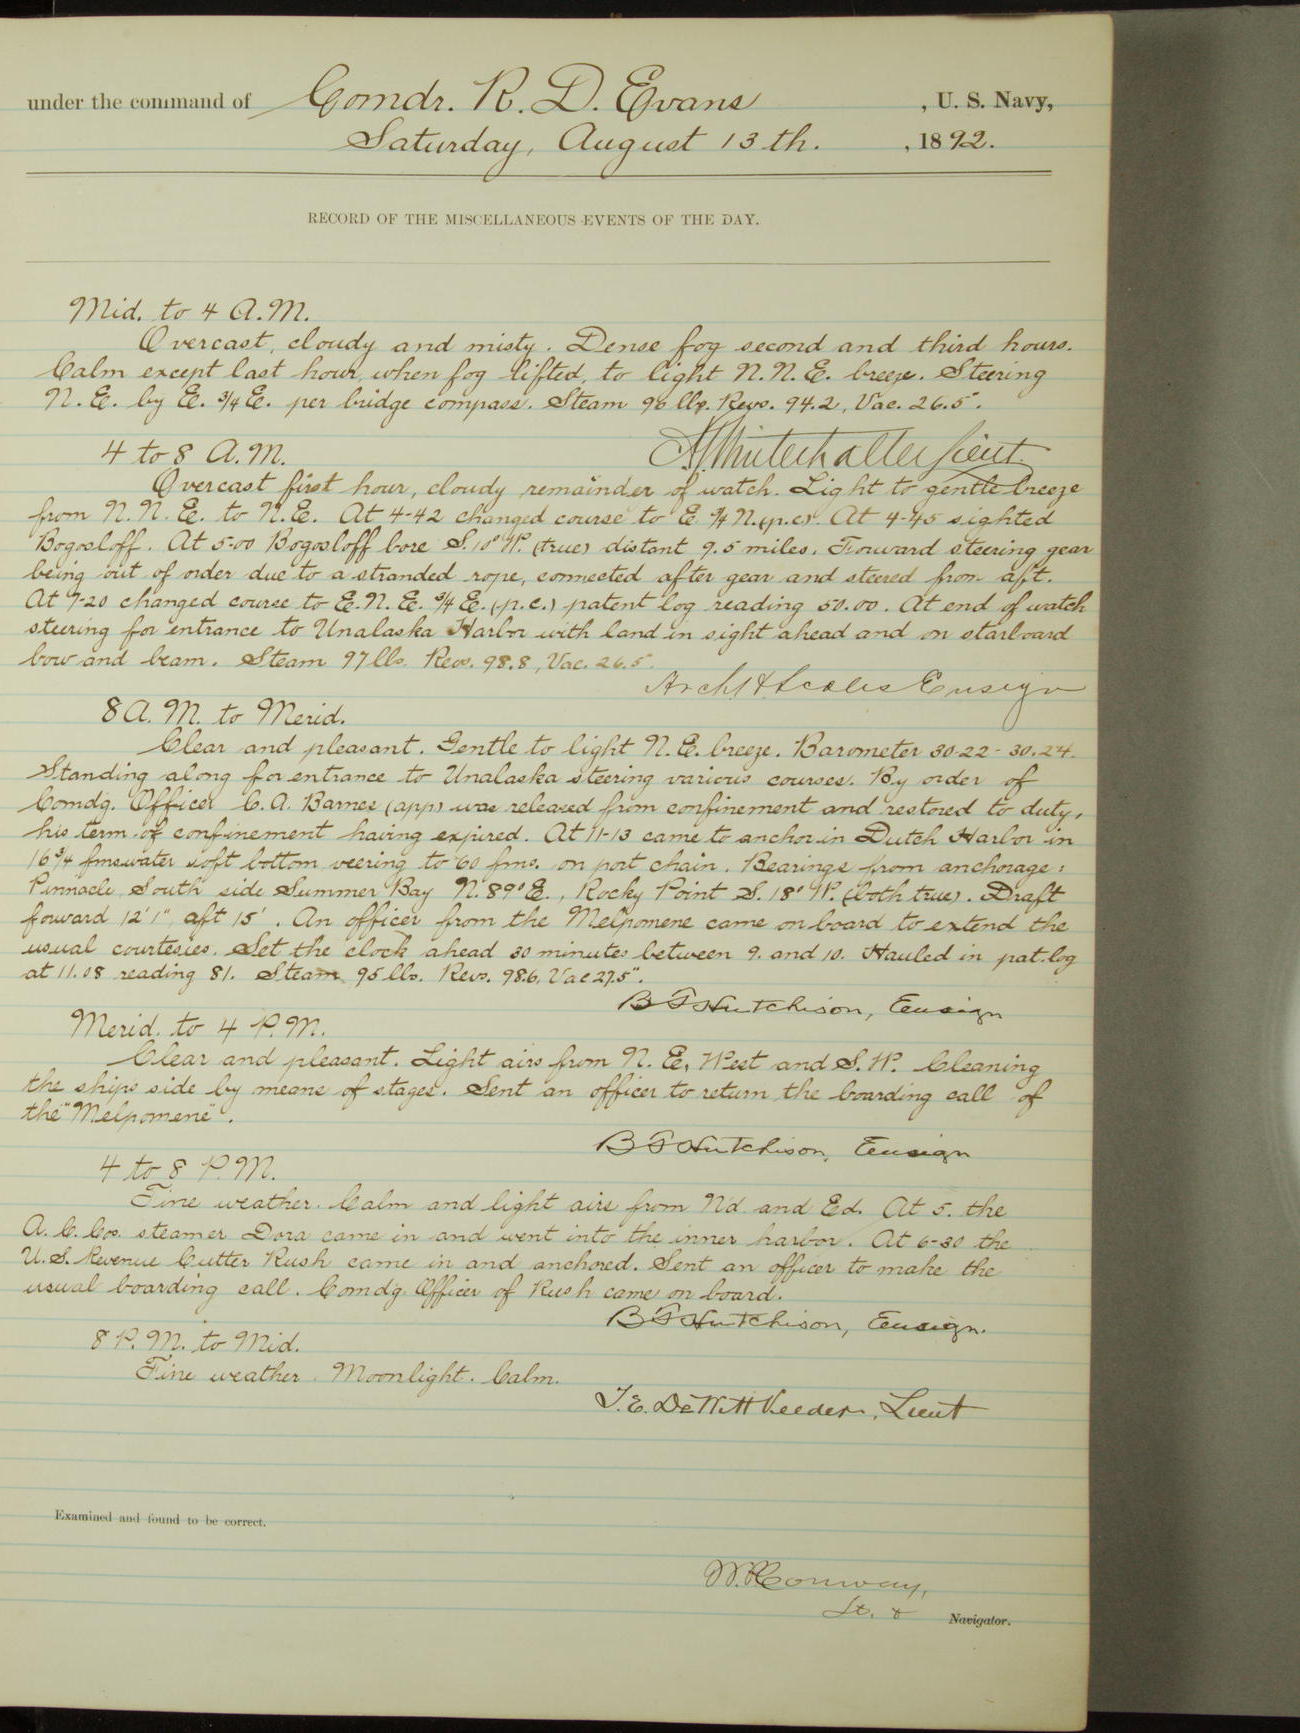 under the command of Comdr. R. D. Evans , U. S. Navy,
Saturday, August 13th. , 1892.
RECORD OF THE MISCELLANEOUS EVENTS OF THE DAY.
Mid. to 4 A.M.
Overcast, cloudy and misty. Dense fog second and third hours.
Calm except last hour, when fog lifted, to light N.N.E. breeze. Steering
N.E. by E. 3/4 E. per bridge compass. Steam 96 lbs. Revs. 94.2, Vac. 26.5".
A. G. Winterhalter Lieut.
4 to 8 A.M.
Overcast first hour, cloudy remainder of watch. Light to gentle breeze
from N.N.E. to N.E. At 4-42 changed course to E. 3/4 N. (p.c). At 4-45 sighted
Bogosloff. At 5-00 Bogosloff bore S. 10° W. (true) distant 9.5 miles. Forward steering gear
being out of order due to a stranded rope, connected after gear and steered from aft.
At 7-20 changed course to E.N.E. 3/4 E. (p.c.) patent log reading 50.00. At end of watch
steering for entrance to Unalaska Harbor with land in sight ahead and on starboard
bow and beam. Steam 97 lbs. Revs. 98.8, Vac. 26.5".
Arch'd H. Scales Ensign
8 A.M. to Merid.
Clear and pleasant. Gentle to light N.E. breeze. Barometer 30.22 - 30.24.
Standing along for entrance to Unalaska steering various courses. By order of
Comdg. Officer C. A. Barnes (app) was released from confinement and restored to duty,
his term of confinement having expired. At 11-13 came to anchor in Dutch Harbor in
16 3/4 fms water soft bottom veering to 60 fms. on port chain. Bearings from anchorage:
Pinnacle South side Summer Bay N. 89° E., Rocky Point S. 18° W. (both true). Draft
forward 12' 1", aft 15'. An officer from the Melpomene came on board to extend the
usual courtesies. Set the clock ahead 30 minutes between 9. and 10. Hauled in pat. log
at 11.08 reading 81. Steam 95 lbs. Revs. 98.6, Vac 27.5".
B F Hutchison, Ensign
Merid. to 4 P.M.
Clear and pleasant. Light airs from N.E, West and S.W. Cleaning
the ships side by means of stages. Sent an officer to return the boarding call of
the "Melpomene".
B F Hutchison, Ensign
4 to 8 P.M.
Fine weather. Calm and light airs from Nd. and Ed. At 5. the
A.C. Cos. steamer Dora came in and went into the inner harbor. At 6-30 the
U.S. Revenue Cutter Rush came in and anchored. Sent an officer to make the
usual boarding call. Comdg Officer of Rush came on board.
B F Hutchison, Ensign.
8 P.M. to Mid.
Fine weather. Moonlight. Calm.
T. E. DeWitt Veeder, Lieut
Examined and found to be correct.
W. P. Conway,
Lt. & Navigator.